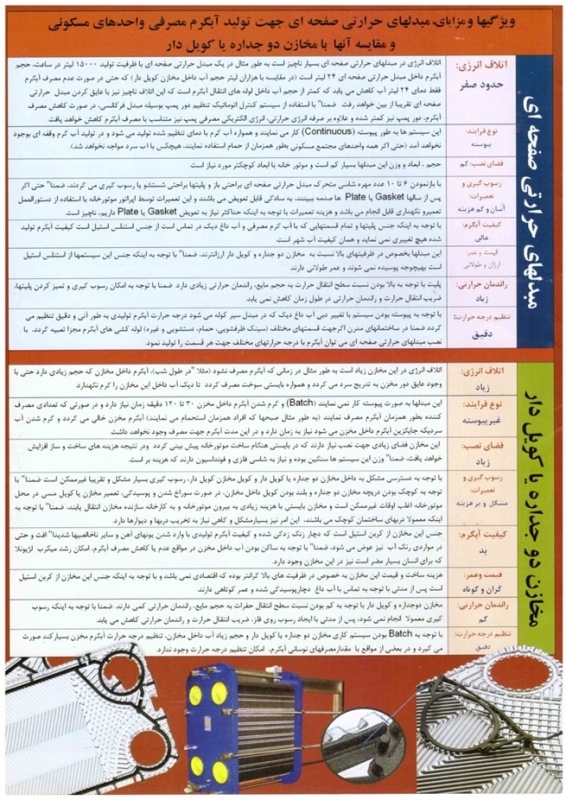 ویژگیها ومزایای، مبدلهای حرارتی صفحه ای جهت تولید آبگرم مصرفی واحدهای مسکونی
و مقایسه آنها با مخازن دو جداره یا کویل دار
مبدلهای حرارتی صفحه ای
اتلاف انرژی:
حدود صفر
اتلاف انرژی در مبدلهای حرارتی صفحه ای بسیار ناچیز است به طور مثال در یک مبدل حرارتی صفحه ای با ظرفیت تولید ۱۵۰۰۰ لیتر در ساعت، حجم
آبگرم داخل مبدل حرارتی صفحه ای ۲۴ لیتر است (در مقایسه با هزاران لیتر حجم آب داخل مخازن کویل دار) که حتی در صورت عدم مصرف آبگرم
فقط دمای ۲۴ لیتر آب کاهش می یابد که کمتر از حجم آب داخل لوله های انتقال آبگرم است که این اتلاف ناچیز نیز با عایق کردن مبدل حرارتی
صفحه ای تقریبا از بین خواهد رفت. ضمنا" با استفاده از سیستم کنترل اتوماتیک تنظیم دور پمپ بوسیله مبدل فرکانس، در صورت کاهش مصرف
آبگرم، دور پمپ نیز کمتر شده و علاوه بر صرفه انرژی حرارتی، انرژی الکتریکی مصرفی پمپ نیز متناسب با مصرف آبگرم کاهش خواهد یافت.
نوع فرایند:
پیوسته
این سیستم ها به طور پیوسته (Continuous) کار می نمایند و همواره آب گرم با دمای تنظیم شده تولید می شود و در تولید آب گرم وقفه ای بوجود
نخواهد آمد (حتی اگر همه واحدهای مجتمع مسکونی بطور همزمان از حمام استفاده نمایند، هیچکس با آب سرد مواجه نخواهد شد)
فضای نصب: کم
حجم ، ابعاد و وزن این مبدلها بسیار کم است و موتور خانه با ابعاد کوچکتر مورد نیاز است
رسوب گیری و
تعمیرات:
آسان و کم هزینه
با بازنمودن ۶ تا ۱۰ عدد مهره شاسی متحرک مبدل حرارتی صفحه ای براحتی باز و پلیتها براحتی شستشو یا رسوب گیری می گردند، ضمنا" حتی اگر
پس از سالها Gasket یا Plate ها صدمه ببینند، به سادگی قابل تعویض می باشند و این تعمیرات توسط اپراتور موتورخانه با استفاده از دستورالعمل
تعمیرو نگهداری قابل انجام می باشد و هزینه تعمیرات با توجه به اینکه حداکثر نیاز به تعویض Gasket یا Plate داریم، ناچیز است.
کیفیت آبگرم:
عالی
با توجه به اینکه جنس پلیتها و تمام قسمتهایی که با آب گرم مصرفی و آب داغ دیک در تماس است از جنس استنلس استیل است کیفیت آبگرم تولید
شده هیچ تغییری نمی نماید و همان کیفیت آب شهر است.
قیمت و عمر:
ارزان و طولانی
این مبدلها بخصوص در ظرفیتهای بالا نسبت به مخازن دو جداره و کویل دار ارزانترند، ضمنا" با توجه به اینکه جنس این سیستمها از استنلس استیل
است بهیچوجه پوسیده نمی شوند و عمر طولانی دارند.
راندمان حرارتی:
زیاد
پلیت با توجه به بالا بودن نسبت سطح انتقال حرارت به حجم مایع، راندمان حرارتی زیادی دارد. ضمنا با توجه به امکان رسوب گیری و تمیز کردن پلیتها،
ضریب انتقال حرارت و راندمان حرارتی در طول زمان کاهش نمی یابد
تنظیم درجه حرارت:
دقیق
با توجه به پیوسته بودن سیستم با تغییر دبی آب داغ دیک که در مبدل سیر کوله می شود درجه حرارت آبگرم تولیدی به طور آنی و دقیق تنظیم می
گردد ضمنا در ساختمانهای مدرن اگرجهت قسمتهای مختلف (سینک ظرفشویی، حمام، دستشویی و غیره) لوله کشی های آبگرم مجزا تعبیه گردد، با
نصب مبدلهای حرارتی صفحه ای می توان آبگرم با درجه حرارتهای مختلف جهت هر قسمت را تولید نمود.
مخازن دو جداره یا کویل دار
اتلاف انرژی:
زیاد
اتلاف انرژی در این مخازن زیاد است به طور مثال در زمانی که آبگرم مصرف نشود (مثلا "در طول شب)، آبگرم داخل مخازن که حجم زیادی دارد حتی با
وجود عایق دور مخزن به تدریج سرد می گردد و همواره بایستی سوخت مصرف گردد تا دیک آب داخل این مخازن را گرم نگهدارد.
نوع فرایند:
غیرپیوسته
این مبدلها به صورت پیوسته کار نمی نمایند (Batch) و گرم شدن آبگرم داخل مخزن ۳۰ تا ۱۲۰ دقیقه زمان نیاز دارد و در صورتی که تعدادی مصرف
کننده بطور همزمان آبگرم مصرف نمایند (به طور مثال صبحها که افراد همزمان استحمام می نمایند) آبگرم مخزن خالی می گردد و گرم شدن آب
سردیکه جایگزین آبگرم داخل مخزن می شود نیاز به زمان دارد و در این مدت آبگرم جهت مصرف وجود نخواهد داشت.
فضای نصب:
زیاد
این مخازن فضای زیادی جهت نصب نیاز دارند که در بایستی هنگام ساخت موتورخانه پیش بینی گردد ودر نتیجه هزینه های ساخت و ساز افزایش
خواهد یافت، ضمنا" وزن این سیستم ها سنگین بوده و نیاز به شاسی فلزی و فونداسیون دارند که هزینه بر است.
رسوب گیری و
تعمیرات:
مشکل و پر هزینه
با توجه به دسترسی مشکل به داخل مخازن دو جداره یا کویل دار و کویل مخازن کویل دار، رسوب گیری بسیار مشکل و تقریبا غیرممکن است ضمنا" با
توجه به کوچک بودن دریچه مخازن دو جداره و بلند بودن کویل داخل مخازن، در صورت سوراخ شدن و پوسیدگی، تعمیر مخازن یا کویل مسی در محل
موتورخانه اغلب اوقات غیرممکن است و مخازن بایستی با هزینه زیادی به بیرون موتورخانه و به کارخانه سازنده مخازن انتقال یابند، ضمنا" با توجه به
اینکه معمولا دربهای ساختمان کوچک می باشند، این امر نیز بسیارمشکل و گاهی نیاز به تخریب دربها و دیوارها دارد.
کیفیت آبگرم:
بد
جنس این مخازن از کربن استیل است که دچار زنگ زدگی شده و کیفیت آبگرم تولیدی با وارد شدن یونهای آهن و سایر ناخالصیها شدیدا" افت و حتی
در مواردی رنگ آب نیز عوض می شود، ضمنا" با توجه به ساکن بودن آب داخل مخزن در مواقع عدم یا کاهش مصرف آبگرم، امکان رشد میکرب لژیونلا
که برای انسان بسیار مضر است نیز در این مخازن وجود دارد.
قسمت وعمر:
گران و کوتاه
هزینه ساخت و قیمت این مخازن به خصوص در ظرفیت های بالا گرانتر بوده که اقتصادی نمی باشد و با توجه به اینکه جنس این مخازن از کربن استیل
است پس از مدتی با توجه به تماس با آب داغ دچارپوسیدگی شده و عمر کوتاهی دارند.
راندمان حرارتی:
کم
مخازن دوجداره و کویل دار با توجه به کم بودن نسبت سطح انتقال حرارت به حجم مایع، راندمان حرارتی کمی دارند. ضمنا با توجه به اینکه رسوب
گیری معمولا انجام نمی شود، پس از مدتی با ایجاد رسوب روی فلز، ضریب انتقال حرارت و راندمان حرارتی کاهش می یابد.
تنظیم درجه حرارت:
دقیق
با توجه به Batch بودن سیستم کاری مخازن دو جداره یا کویل دار و حجم زیاد آب داخل مخازن، تنظیم درجه حرارت آبگرم مخزن بسیار کند صورت
می گیرد و در بعضی از مواقع با مقدارمصرفهای نوسانی آبگرم، امکان تنظیم درجه حرارت وجود ندارد.